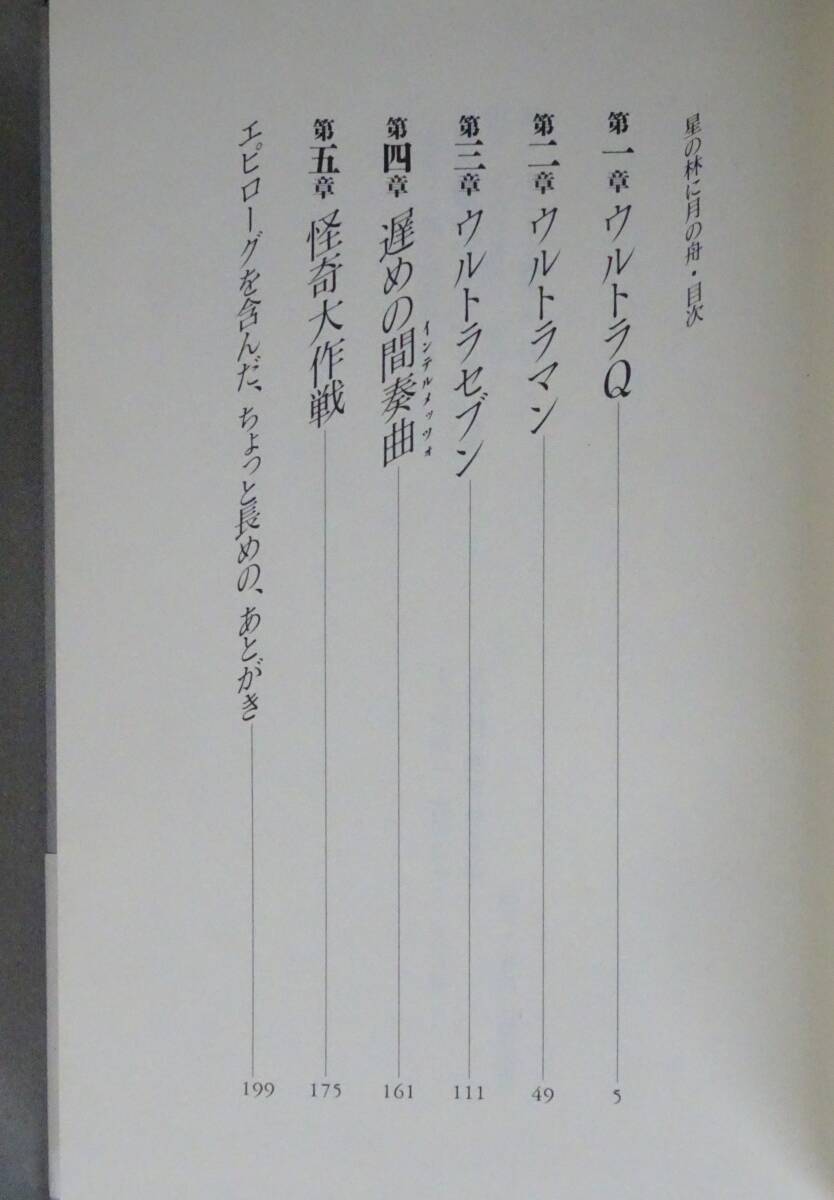 星の林に月の舟・目次
第一章 ウルトラQ 5
第二章 ウルトラマン 49
第三章 ウルトラセブン 111
第四章 遅めの間奏曲 161
インテルメッツォ
第五章 怪奇大作戦 175
エピローグを含んだ、ちょっと長めの、あとがき 199